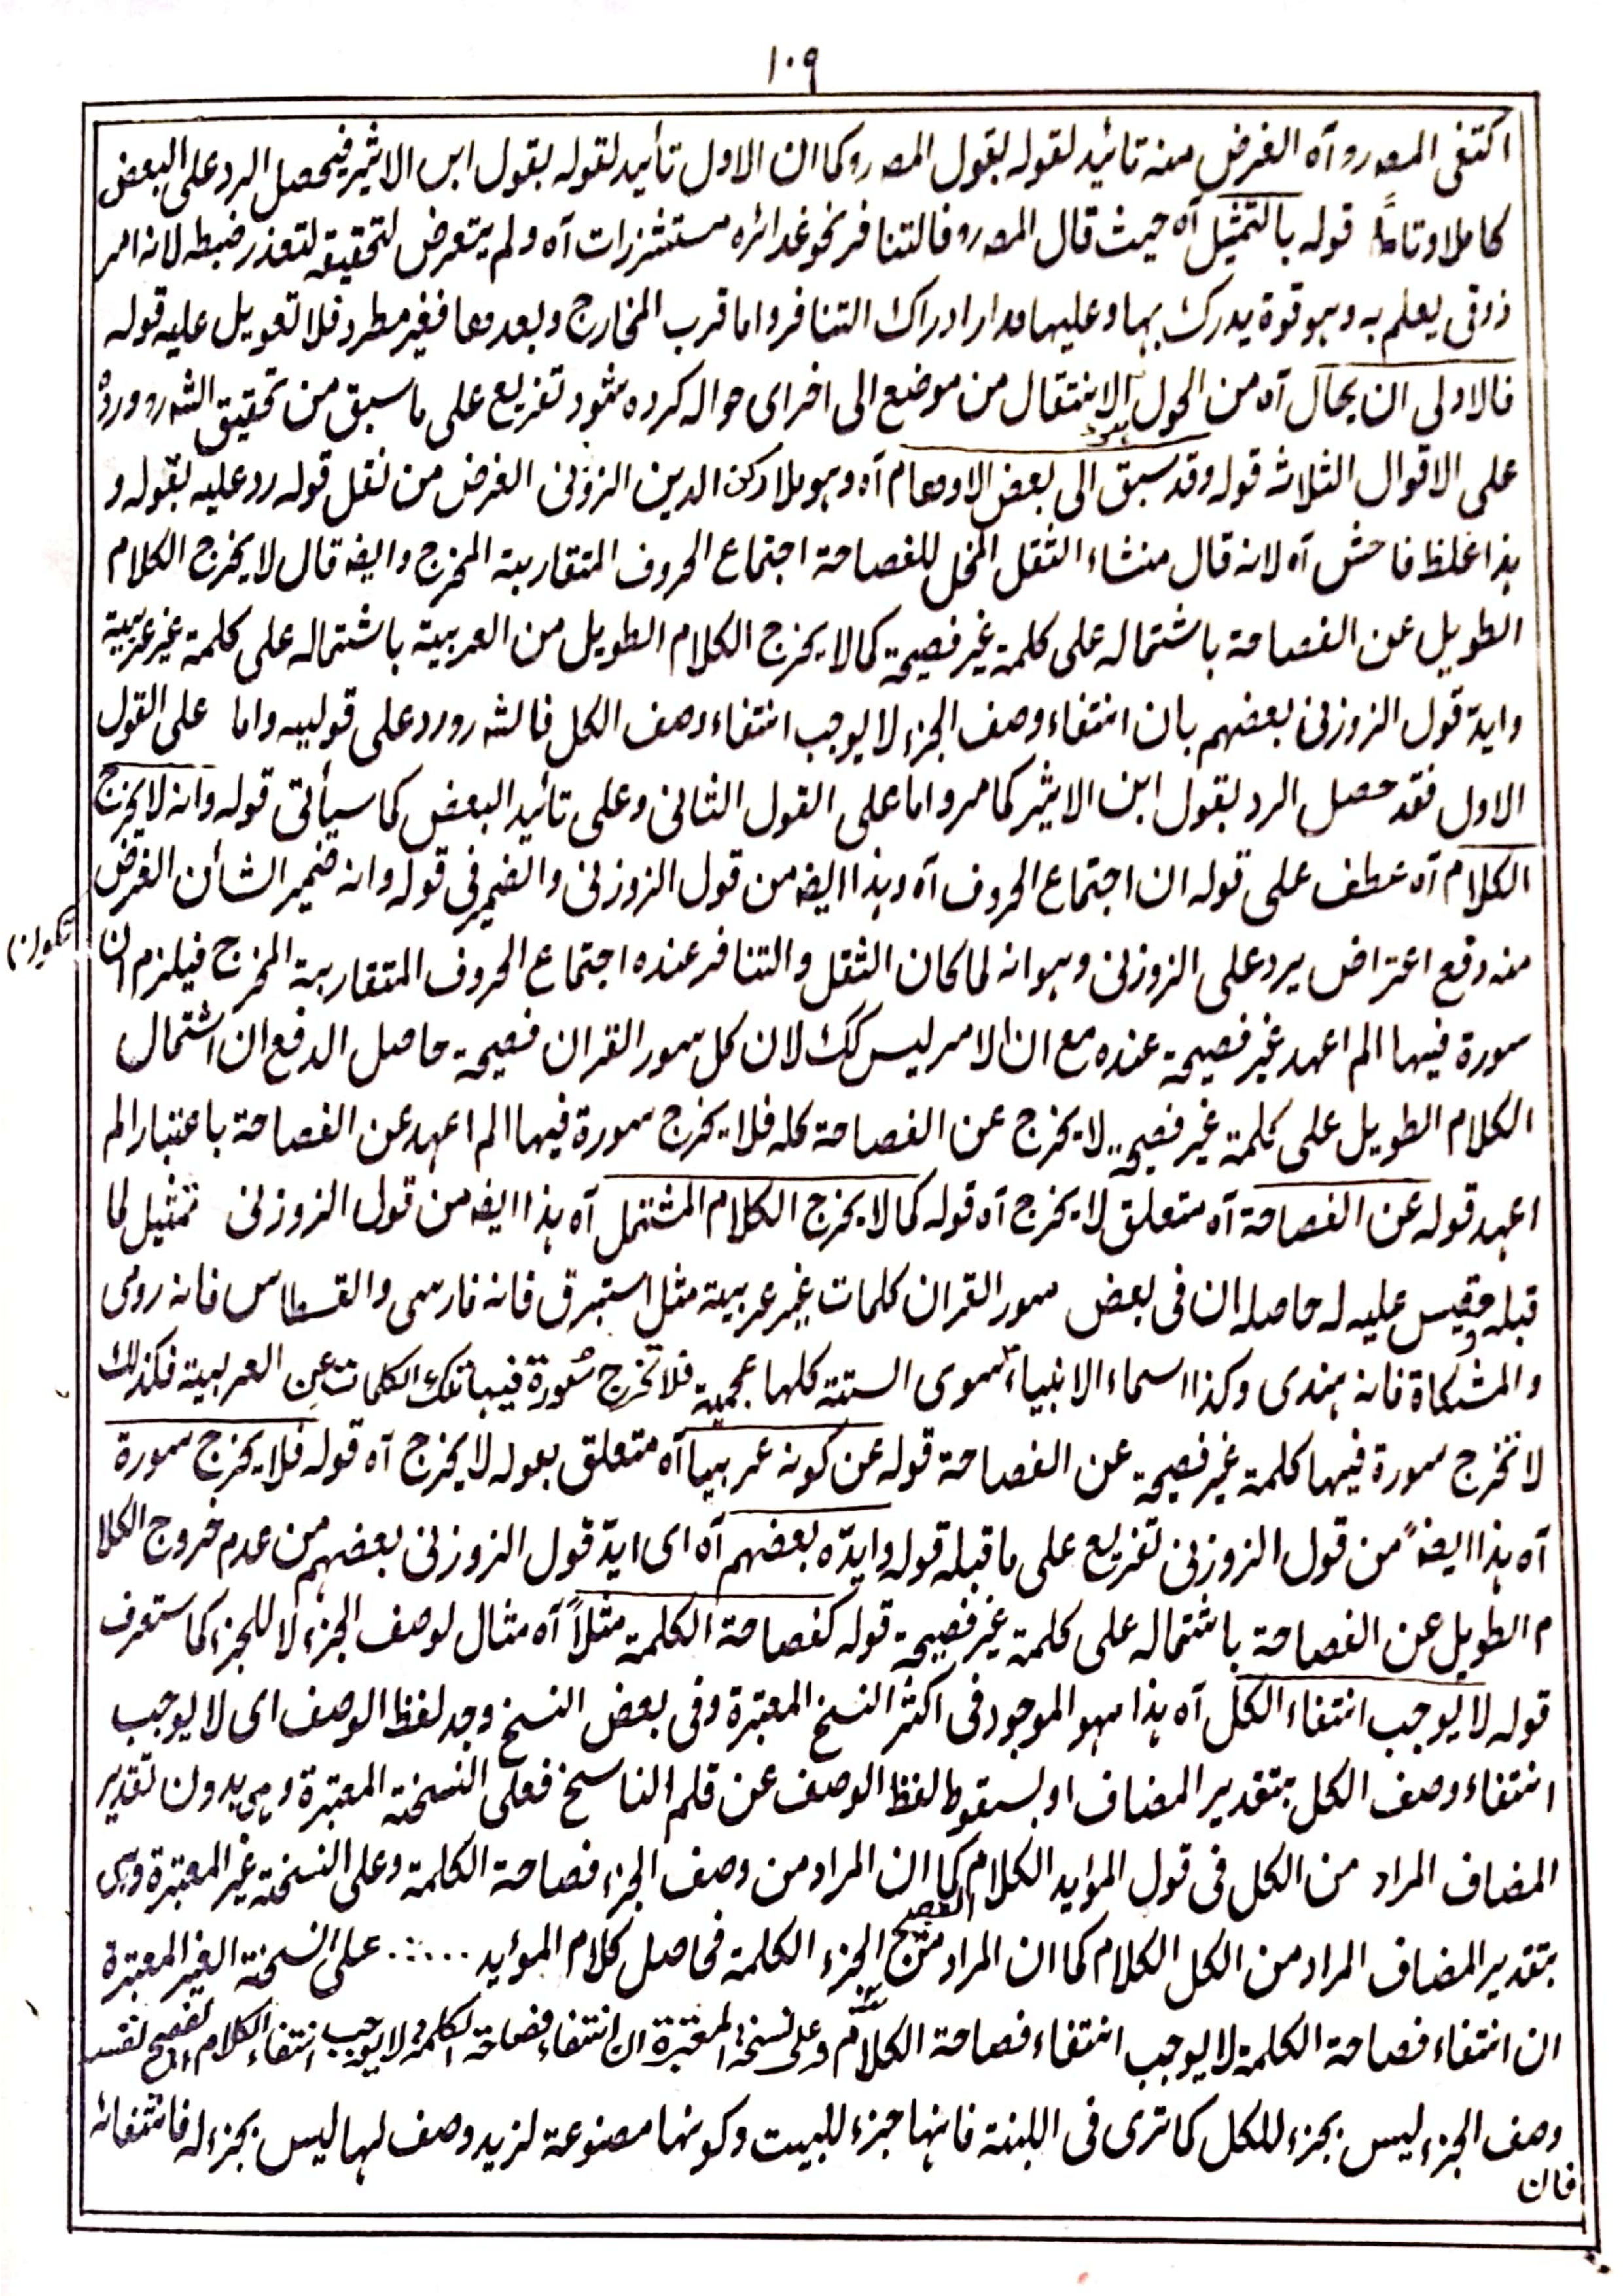 ١٠٩
اکتفی المصـ رو آہ الغرض منہ تائید لقولہ بقول المصـ رو کما ان الاول تأیید لقولہ بقول ابن الاثیر فیحصل الرد علی البعض
کاملا وتاماً قولہ بالتمثیل آہ حیث قال المصـ رو فالتنافر نحو غدائرہ مستشزرات آہ ولم یتعرض لتحقیقہ لتعذر ضبطہ لانہ امر
ذوقی یعلم بہ وہو قوۃ یدرک بہا وعلیہا مدار ادراک التنافر واما قرب المخارج وبعدھا فغیر مطرد فلا تعویل علیہ قولہ
فالاولی ان یحال آہ من الحول الانتقال من موضع الی اخرای حوالہ کردہ شود تفریع علی ما سبق من تحقیق الشہ رو وردہ
علی الاقوال الثلاثہ قولہ وقد سبق الی بعض الاوھام آہ وہو ملا رکن الدین الزوزنی الغرض من نقل قولہ رد علیہ بقولہ و
ہذا غلط فاحش آہ لانہ قال منشاء الثقل المخل للفصاحۃ اجتماع الحروف المتقاربۃ المخرج وایضہ قال لا یخرج الکلام
الطویل عن الفصاحۃ باشتمالہ علی کلمۃ غیر فصیحۃ کما لا یخرج الکلام الطویل من العربیۃ باشتمالہ علی کلمۃ غیر عربیۃ
وایدہ قول الزوزنی بعضہم بان انتفاء وصف الجزء لا یوجب انتفاء وصف الکل فالشہ رو رد علی قولیہ واما علی القول
الاول فقد حصل الرد بقول ابن الاثیر کما مر واما علی القول الثانی وعلی تائید البعض کما سیأتی قولہ وانہ لا یخرج
الکلام آہ عطف علی قولہ ان اجتماع الحروف آہ وہذا ایضہ من قول الزوزنی والضمیر فی قولہ وانہ ضمیر الشأن الغرض
منہ دفع اعتراض یرد علی الزوزنی وہو انہ لما کان الثقل والتنافر عندہ اجتماع الحروف المتقاربۃ المخرج فیلزم ان
سورۃ فیہا الم اعہد غیر فصیحۃ عندہ مع ان الامر لیس کک لان کل سور القران فصیحۃ حاصل الدفع ان اشتمال
الکلام الطویل علی کلمۃ غیر فصیحۃ لا یخرج عن الفصاحۃ کلہ فلا یخرج سورۃ فیہا الم اعہد عن الفصاحۃ باعتبار الم
اعہد قولہ عن الفصاحۃ آہ متعلق لا یخرج آہ قولہ کما لا یخرج الکلام المشتمل آہ ہذا ایضہ من قول الزوزنی تمثیل لما
قبلہ ومقیس علیہ لہ حاصلہ ان فی بعض سور القران کلمات غیر عربیۃ مثل استبرق فانہ فارسی والقسطاس فانہ رومی
والمشکاۃ فانہ ہندی وکذا اسماء الانبیاء سوی الستۃ کلہا عجمیۃ فلا تخرج سورۃ فیہا تلک الکلمات عن العربیۃ فکذلک
لا تخرج سورۃ فیہا کلمۃ غیر فصیحۃ عن الفصاحۃ قولہ عن کونہ عربیا آہ متعلق بقولہ لا یخرج آہ قولہ فلا یخرج سورۃ
آہ ہذا ایضہً من قول الزوزنی تفریع علی ما قبلہ قولہ وایدّہ بعضہم آہ ای ایدّ قول الزوزنی بعضہم من عدم خروج الکلا
م الطویل عن الفصاحۃ باشتمالہ علی کلمۃ غیر فصیحۃ قولہ کفصاحۃ الکلمۃ مثلاً آہ مثال لوصف الجزء لا للجزء کما ستعرف
قولہ لا یوجب انتفاء الکل آہ ہذا ہو الموجود فی اکثر النسخ المعتبرۃ وفی بعض النسخ وجد لفظ الوصف ای لا یوجب
انتفاء وصف الکل بتقدیر المضاف او بسقوط لفظ الوصف عن قلم الناسخ فعلی النسخۃ المعتبرۃ وہی بدون تقدیر
المضاف المراد من الکل فی قول المؤید الکلام کما ان المراد من وصف الجزء فصاحۃ الکلمۃ وعلی النسخۃ غیر المعتبرۃ وہی
بتقدیر المضاف المراد من الکل الکلام الفصیح کما ان المراد من الجزء الکلمۃ فحاصل کلام المؤید ..... علی النسخۃ الغیر المعتبرۃ
ان انتفاء فصاحۃ الکلمۃ لا یوجب انتفاء فصاحۃ الکلام وعلی نسخۃ المعتبرۃ ان انتفاء فصاحۃ الکلمۃ لا یوجب انتفاء الکلام الفصیح نفسہ
وصف الجزء لیس بجزء للکل کما تری فی اللبنۃ فانہا جزء للبیت وکونہا مصنوعۃ لزید وصف لہا لیس بجزء لہ فانتفائہ
فان